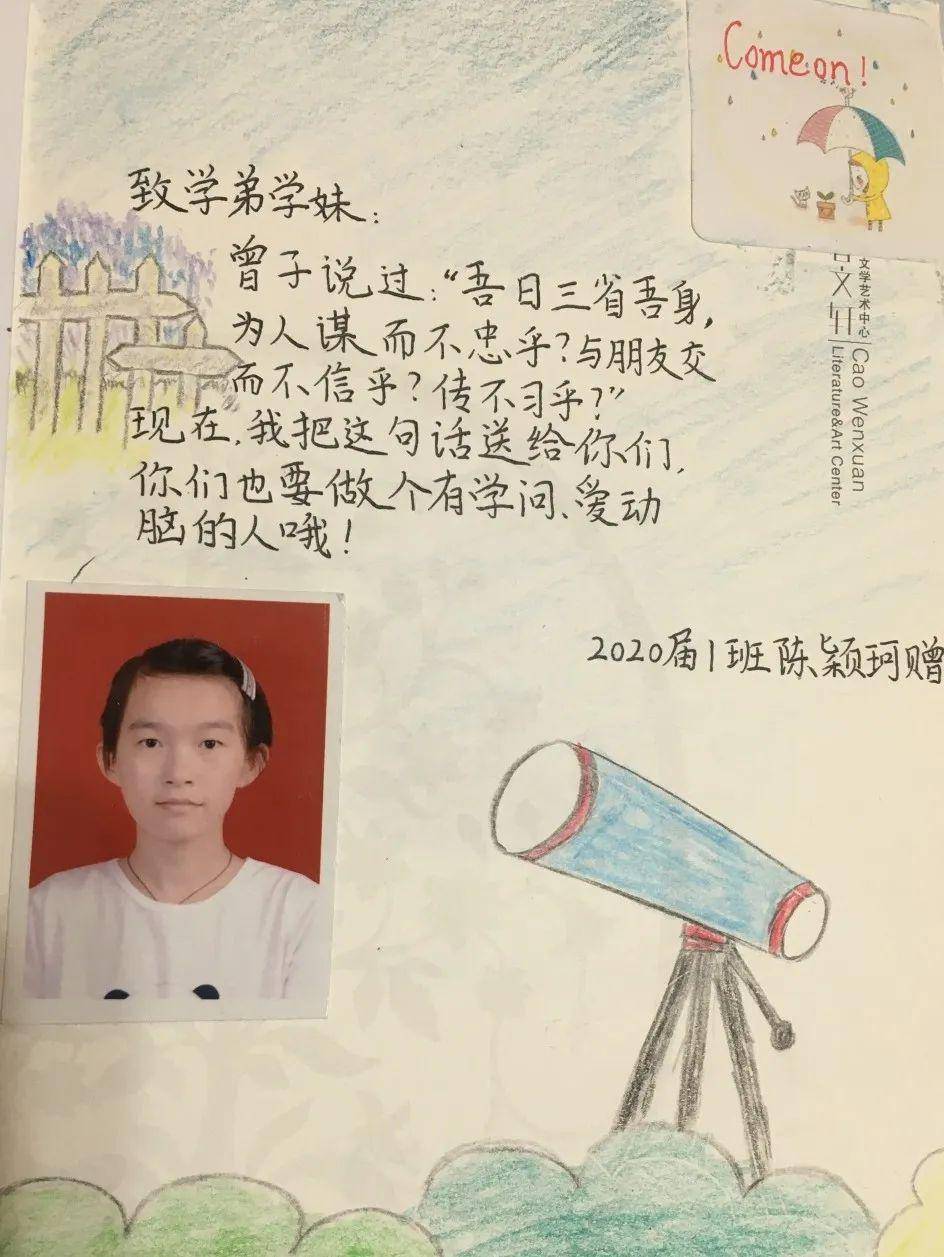 Come on!
致学弟学妹：
曾子说过：“吾日三省吾身，
为人谋而不忠乎？与朋友交
而不信乎？传不习乎？”
现在，我把这句话送给你们，
你们也要做个有学问、爱动
脑的人哦！
2020届1班陈颖珂赠
文学艺术中心
Cao Wenxuan
Literature&Art Center